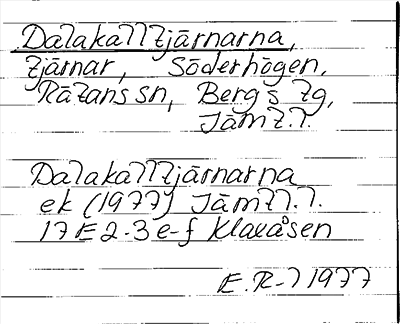 Dalakalltjärnarna,
tjärnar, Söderhögen,
Rätans sn, Bergs tg,
Jämtl.
Dalakalltjärnarna
ek (1977) Jämtl.
17 E 2-3 e-f Klaxåsen
E.R-l 1977